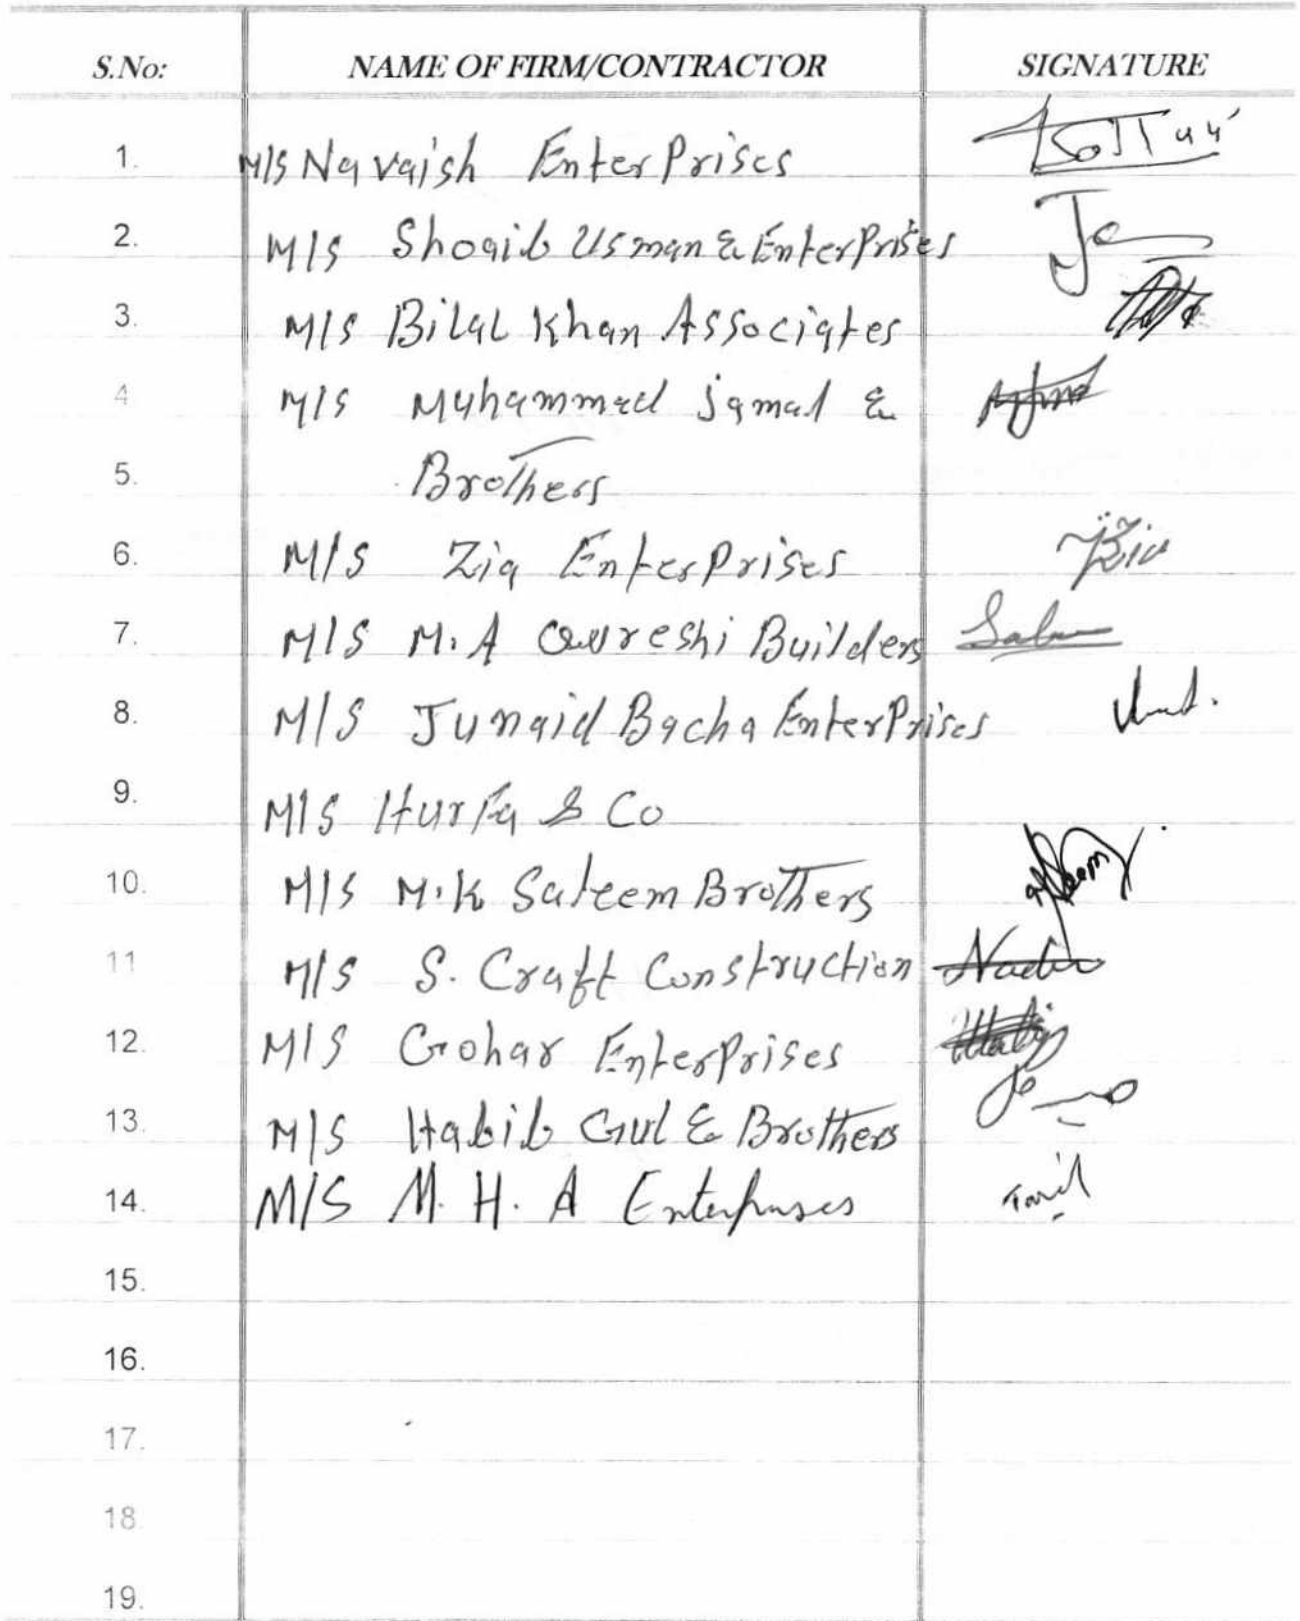 S.No: NAME OF FIRM/CONTRACTOR SIGNATURE
1. M/S Navaish EnterPrises
2. M/S Shoaib Usman & EnterPrises
3. M/S Bilal Khan Associates
4 M/S Muhammad Jamal &
5. Brothers
6. M/S Zia EnterPrises Zia
7. M/S M.A Qureshi Builders
8. M/S Junaid Bacha EnterPrises
9. M/S Hurfa & Co
10. M/S M.K Saleem Brothers
11 M/S S. Craft Construction
12. M/S Gohar EnterPrises
13. M/S Habib Gul & Brothers
14. M/S M. H. A Enterprises
15.
16.
17.
18.
19.